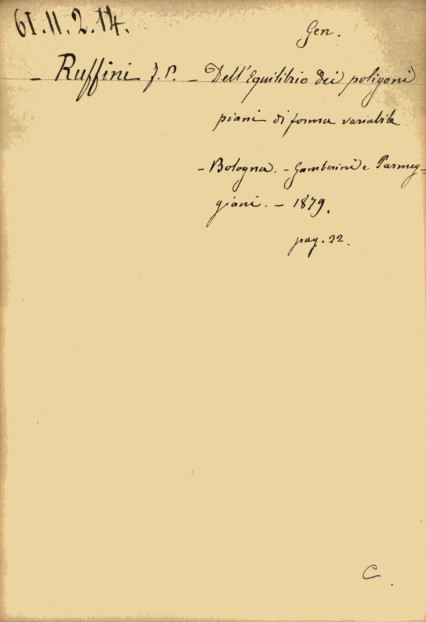 61.11.2.14.
Gen.
- Ruffini F. P. - Dell'Equilibrio dei poligoni
piani di forma variabile
- Bologna. - Gamberini e Parmeg=
giani. - 1879.
pag. 22.
C.